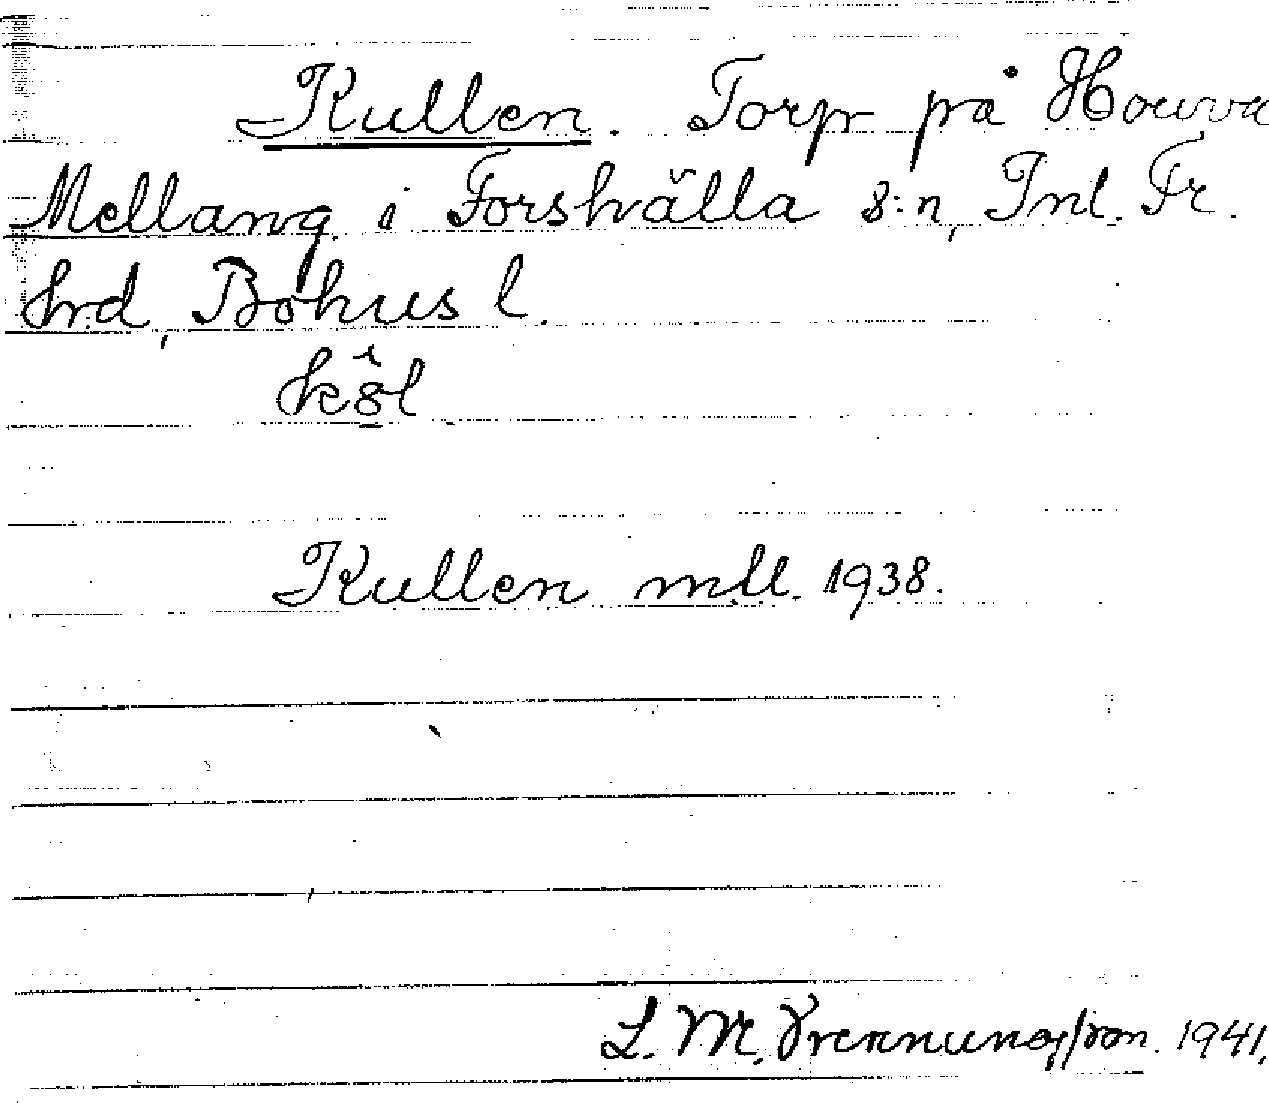 Kullen. Torp på Houva
Mellang. i Forshälla s:n, Inl. Fr.
hrd, Bohus l.
Kullen mll. 1938.
L. M. 1941.